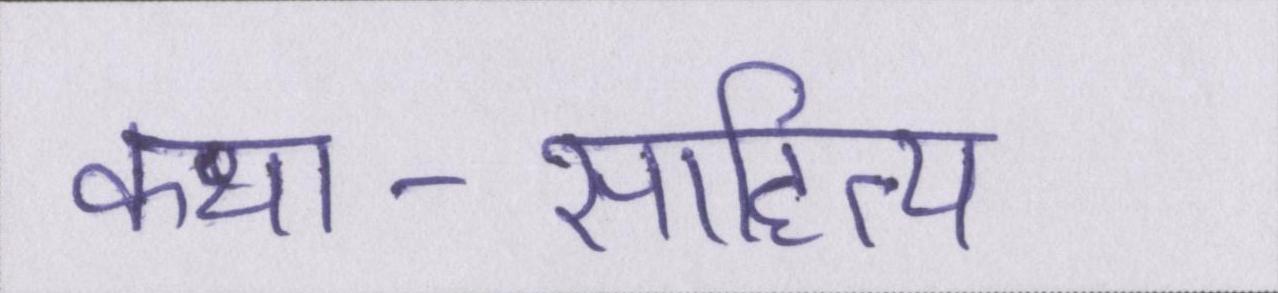 कथा - साहित्य